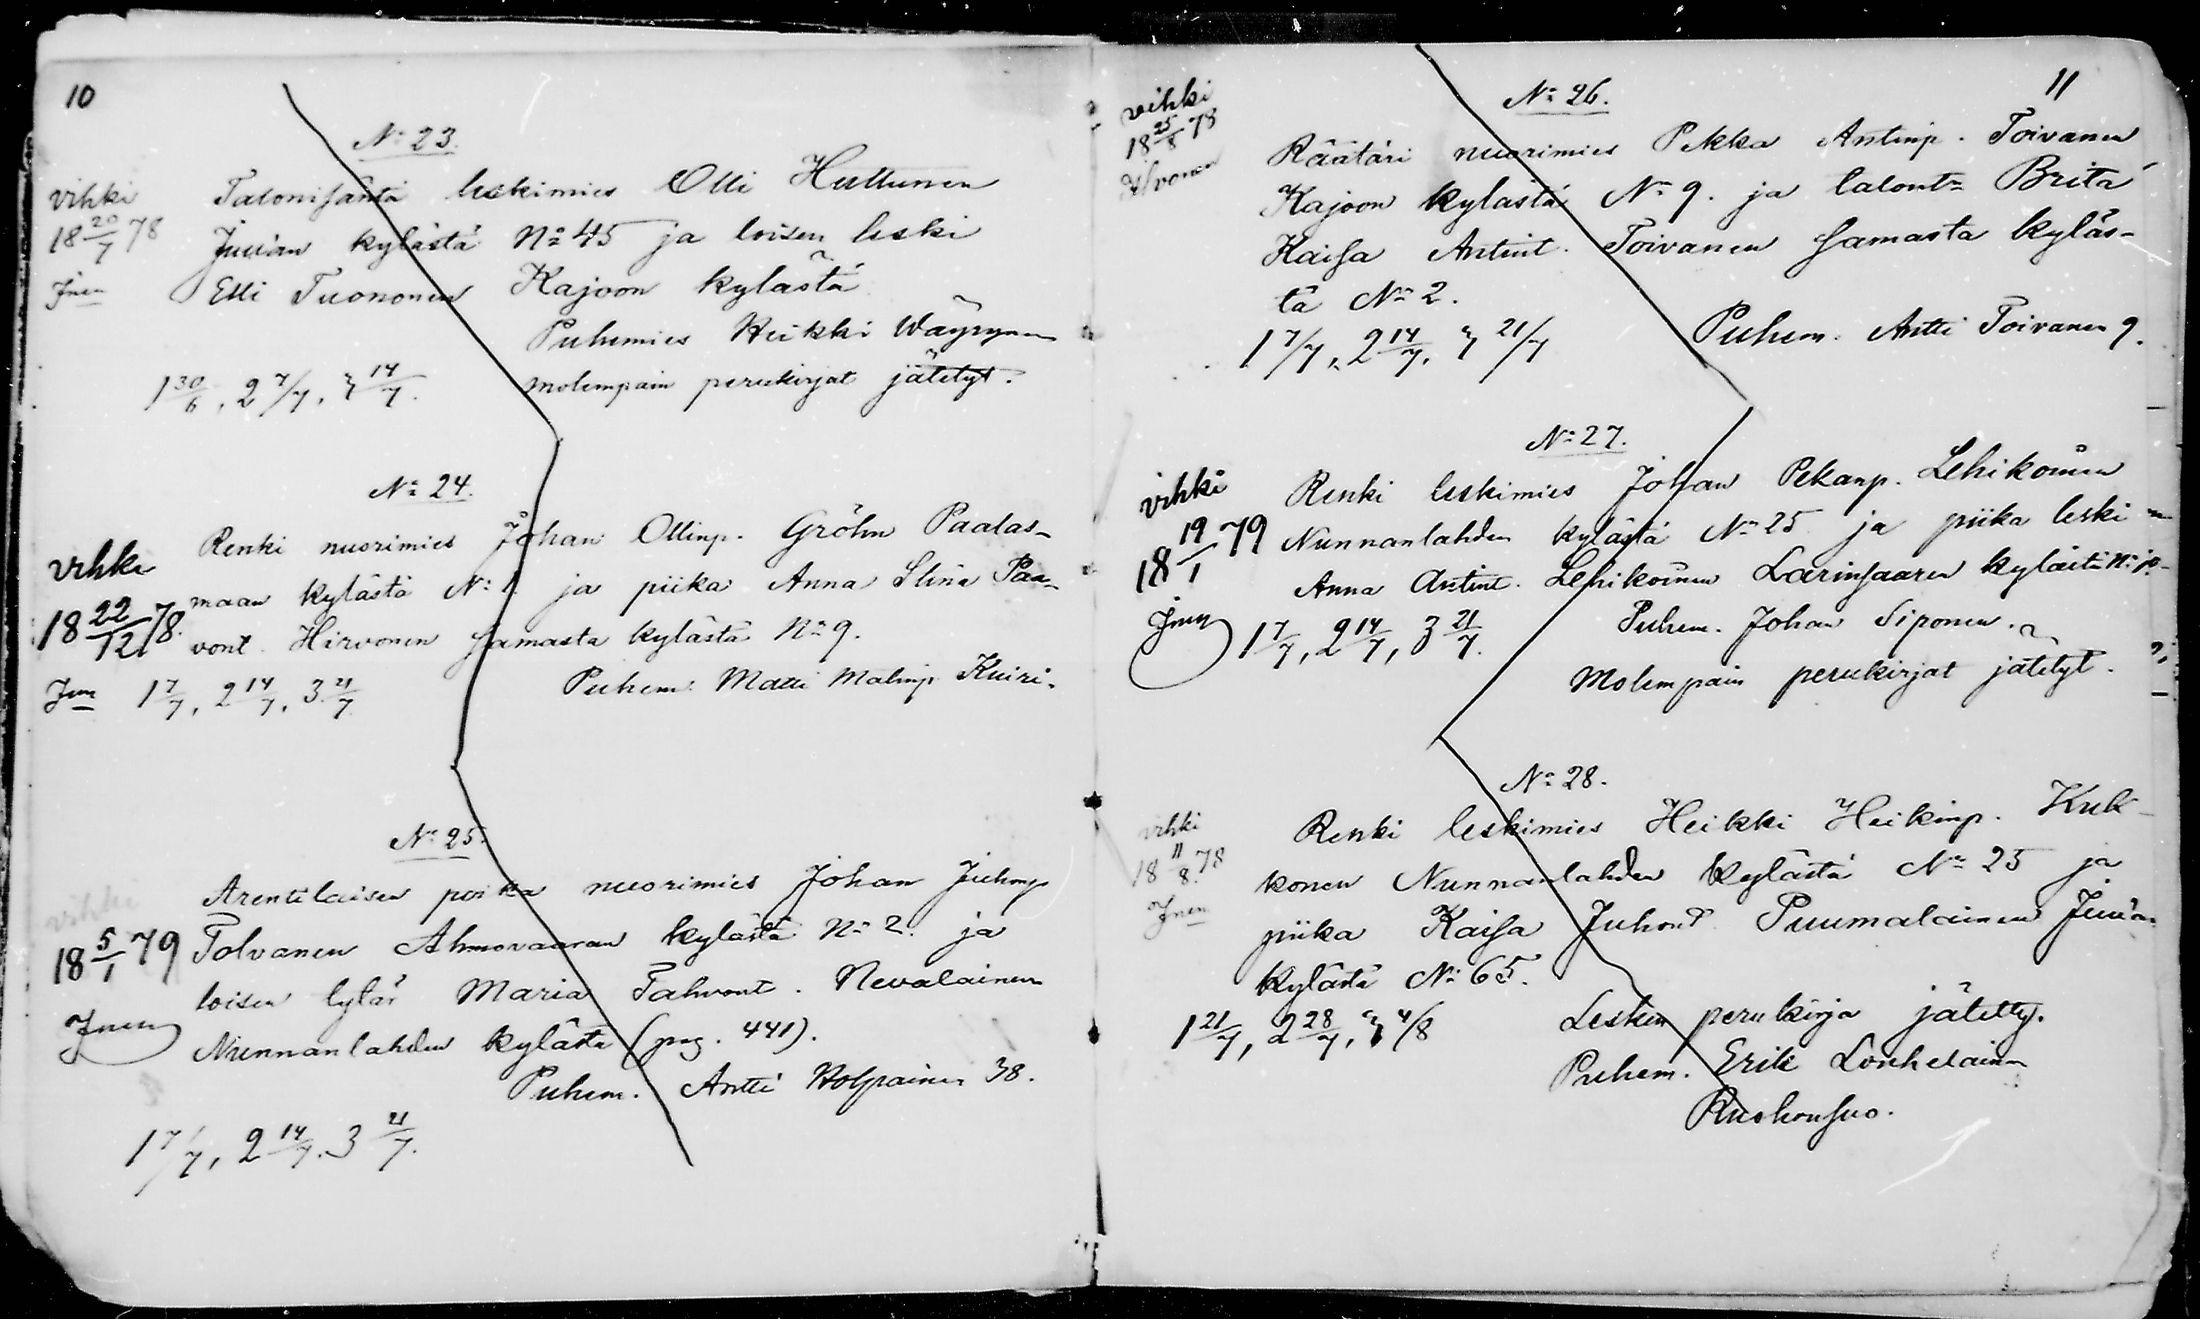 10
No 23.
vihki
18 20/7 78
Jnen
Talonisäntä leskimies Olli Huttunen
Juuan kylästä No 45 ja loisen leski
Elli Tuononen Kajoon kylästä
Puhemies Heikki Wäyrynen
1 30/6, 2 7/7, 3 14/7.
molempain perukirjat jätetyt.
No 24.
vihki
18 22/12 78.
Jnen
Renki nuorimies Johan Ollinp. Gröhn Paalas-
maan kylästä No 1 ja piika Anna Stina Paa-
vont. Hirvonen samasta kylästä No 9.
1 7/7, 2 14/7, 3 21/7
Puhem. Matti Matinp. Kuiri.
No 25.
vihki
18 5/1 79
Jnen
Arentilaisen poika nuorimies Johan Juhonp
Tolvanen Ahmovaaran kylästä No 2. ja
loisen tytär Maria Tahvont. Nevalainen
Nunnanlahden kylästä (pag. 441).
Puhem. Antti Holpainen 38.
1 7/7, 2 14/7. 3 21/7.
11
No 26.
vihki
18 25/8 78
Räätäri nuorimies Pekka Antinp. Toivanen
Kajoon kylästä No 9. ja talont= Brita
Kaisa Antint. Toivanen samasta kyläs-
tä No 2.
1 7/7, 2 14/7, 3 21/7
Puhem. Antti Toivanen 9.
No 27.
vihki
18 19/1 79
Jnen
Renki leskimies Johan Pekanp. Lehikoinen
Nunnanlahden kylästä No 25 ja piika leski
Anna Antint. Lehikoinen Larinsaaren kylästä No 10
1 7/7, 2 14/7, 3 21/7.
Puhem. Johan Siponen.
Molempain perukirjat jätetyt.
No 28.
vihki
18 11/8. 78
Jnen
Renki leskimies Heikki Heikinp. Kuk-
konen Nunnanlahden kylästä No 25 ja
piika Kaisa Juhont. Puumalainen Juuan
kylästä No 65.
1 21/7, 2 28/7, 3 4/8
Lesken perukirja jätetty.
Puhem. Erik Lonhelainen
Ruskonsuo.